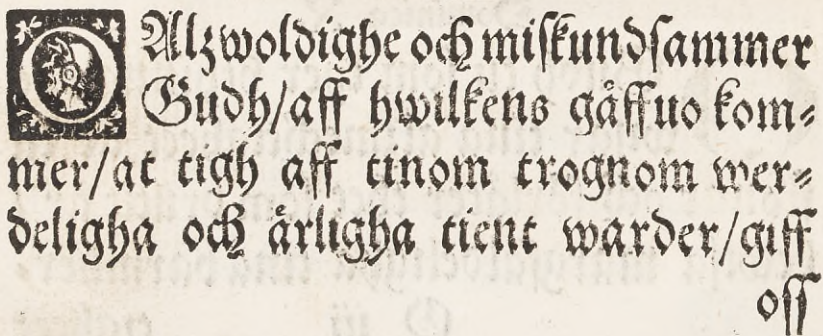 O Alzwoldighe och miſkundſammer
Gudh/aff hwilkens gåffuo kom⸗
mer/at tigh aff tinom trognom wer⸗
deligha och ärligha tient warder/giff
oſſ